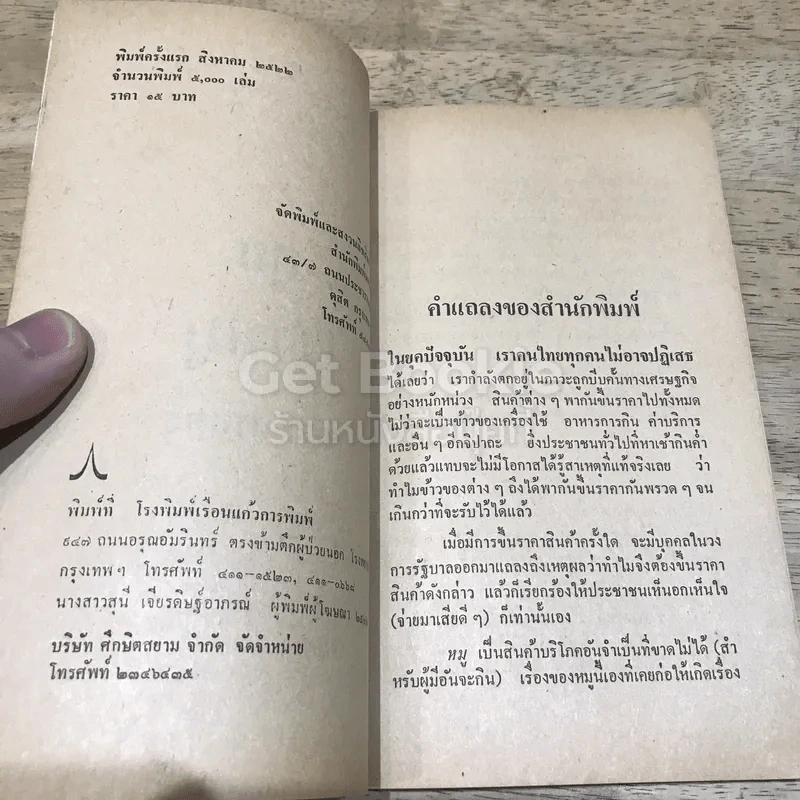 พิมพ์ครั้งแรก สิงหาคม ๒๕๒๒
จำนวนพิมพ์ ๕,๐๐๐ เล่ม
ราคา ๑๕ บาท
จัดพิมพ์และสงวนลิขสิทธิ์
สำนักพิมพ์
๔๓/๗ ถนนประชา
ดุสิต กรุง
โทรศัพท์
พิมพ์ที่ โรงพิมพ์เรือนแก้วการพิมพ์
๙๔๗ ถนนอรุณอัมรินทร์ ตรงข้ามตึกผู้ป่วยนอก
กรุงเทพฯ โทรศัพท์ ๔๑๑-๑๕๒๓, ๔๑๑-๐๖๖๘
นางสาวสุนี เจียรดิษฐ์อาภรณ์ ผู้พิมพ์ผู้โฆษณา
บริษัท ศึกษิตสยาม จำกัด จัดจำหน่าย
โทรศัพท์ ๒๓๔๖๔๓๕
คำแถลงของสำนักพิมพ์
ในยุคปัจจุบัน เราคนไทยทุกคนไม่อาจปฏิเสธ
ได้เลยว่า เรากำลังตกอยู่ในภาวะถูกบีบคั้นทางเศรษฐกิจ
อย่างหนักหน่วง สินค้าต่าง ๆ พากันขึ้นราคาไปทั้งหมด
ไม่ว่าจะเป็นข้าวของเครื่องใช้ อาหารการกิน ค่าบริการ
และอื่น ๆ อีกจิปาถะ ซึ่งประชาชนทั่วไปที่หาเช้ากินค่ำ
ด้วยแล้วแทบจะไม่มีโอกาสได้รู้สาเหตุที่แท้จริงเลย ว่า
ทำไมข้าวของต่าง ๆ ถึงได้พากันขึ้นราคากันพรวด ๆ จน
เกินกว่าที่จะรับไว้ได้แล้ว
เมื่อมีการขึ้นราคาสินค้าครั้งใด จะมีบุคคลในวง
การรัฐบาลออกมาแถลงถึงเหตุผลว่าทำไมจึงต้องขึ้นราคา
สินค้าดังกล่าว แล้วก็เรียกร้องให้ประชาชนเห็นอกเห็นใจ
(จ่ายมาเสียดี ๆ) ก็เท่านั้นเอง
หมู เป็นสินค้าบริโภคอันจำเป็นที่ขาดไม่ได้ (สำ
หรับผู้มีอันจะกิน) เรื่องของหมูนี้เองที่เคยก่อให้เกิดเรื่อง
Get Bookie
ร้านหนังสือมือที่